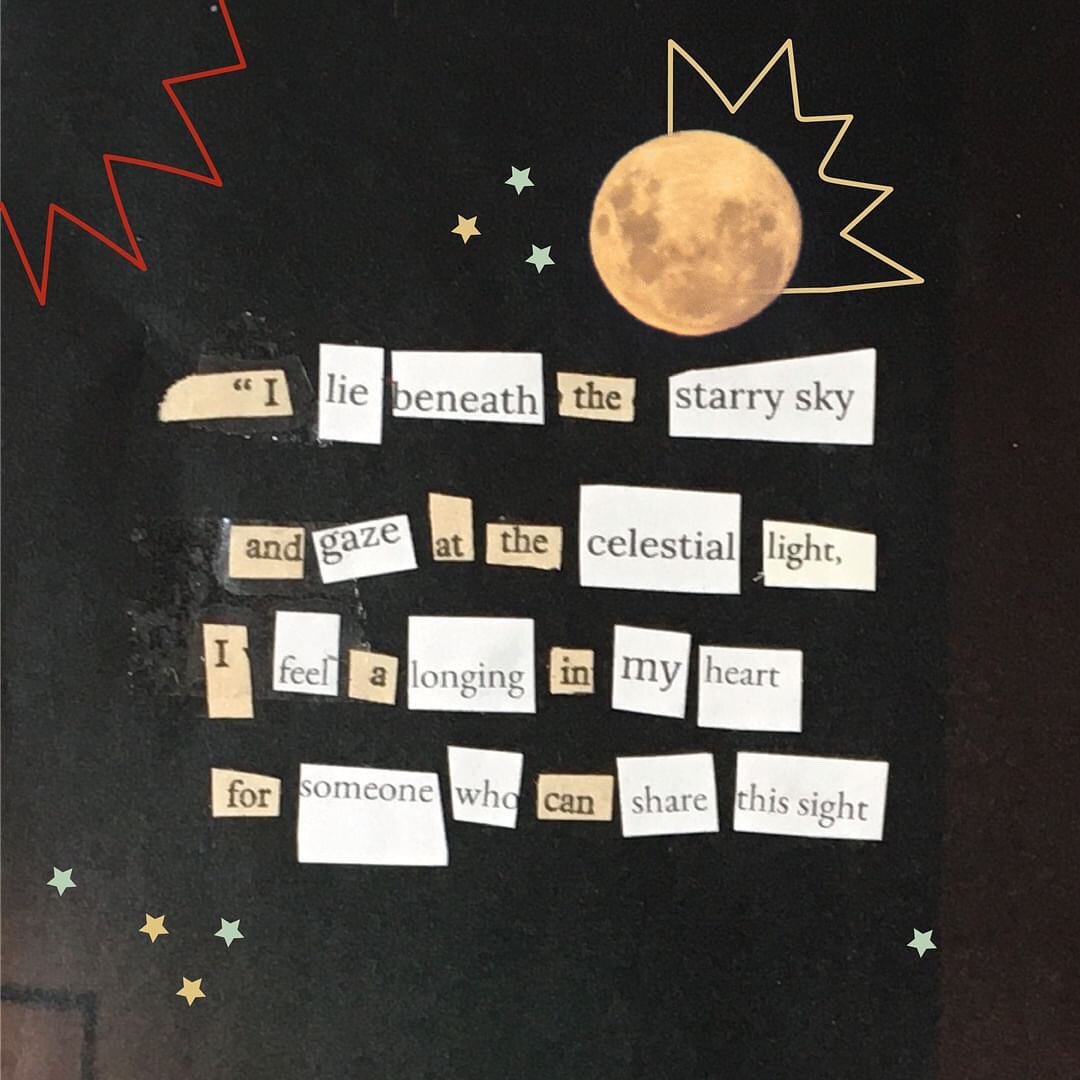 “I lie beneath the starry sky
and gaze at the celestial light,
I feel a longing in my heart
for someone who can share this sight